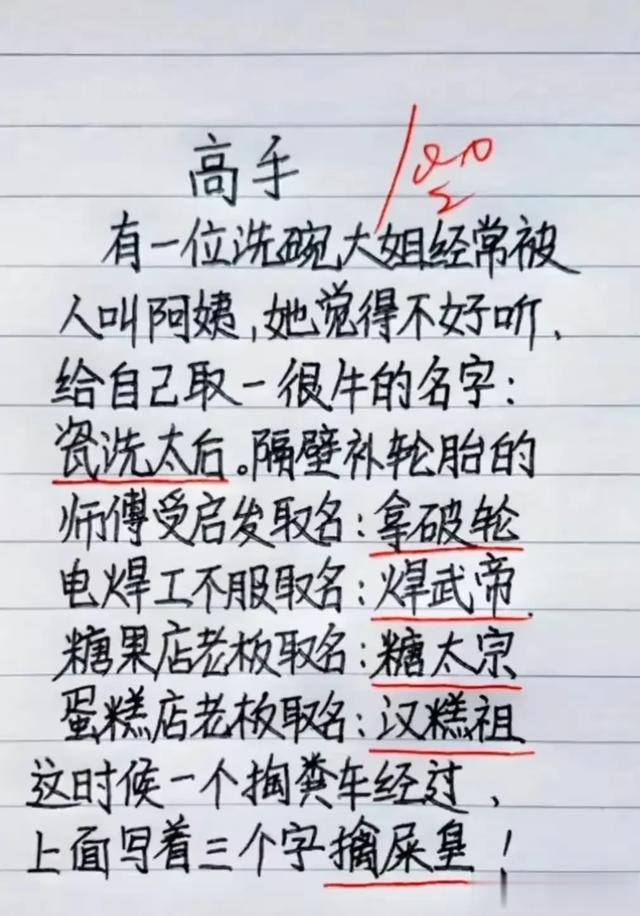 高手 100
有一位洗碗大姐经常被
人叫阿姨,她觉得不好听、
给自己取一很牛的名字:
瓷洗太后。隔壁补轮胎的
师傅受启发取名:拿破轮
电焊工不服取名:焊武帝.
糖果店老板取名:糖太宗
蛋糕店老板取名:汉糕祖
这时候一个掏粪车经过、
上面写着三个字擒屎皇!